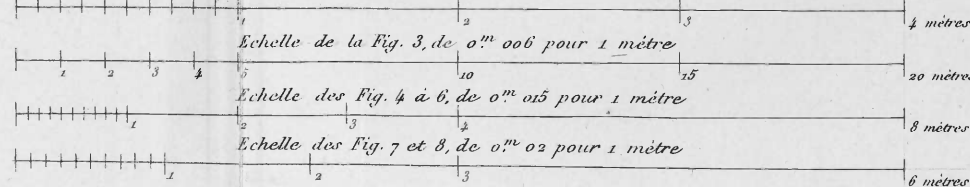 1 2 3 4 mètres
Echelle de la Fig. 3, de 0.m 006 pour 1 métre
1 2 3 4 5 10 15 20 mètres
Echelle des Fig. 4 à 6, de 0.m 015 pour 1 métre
1 2 3 4 8 mètres
Echelle des Fig. 7 et 8, de 0.m 02 pour 1 mètre
1 2 3 6 mètres